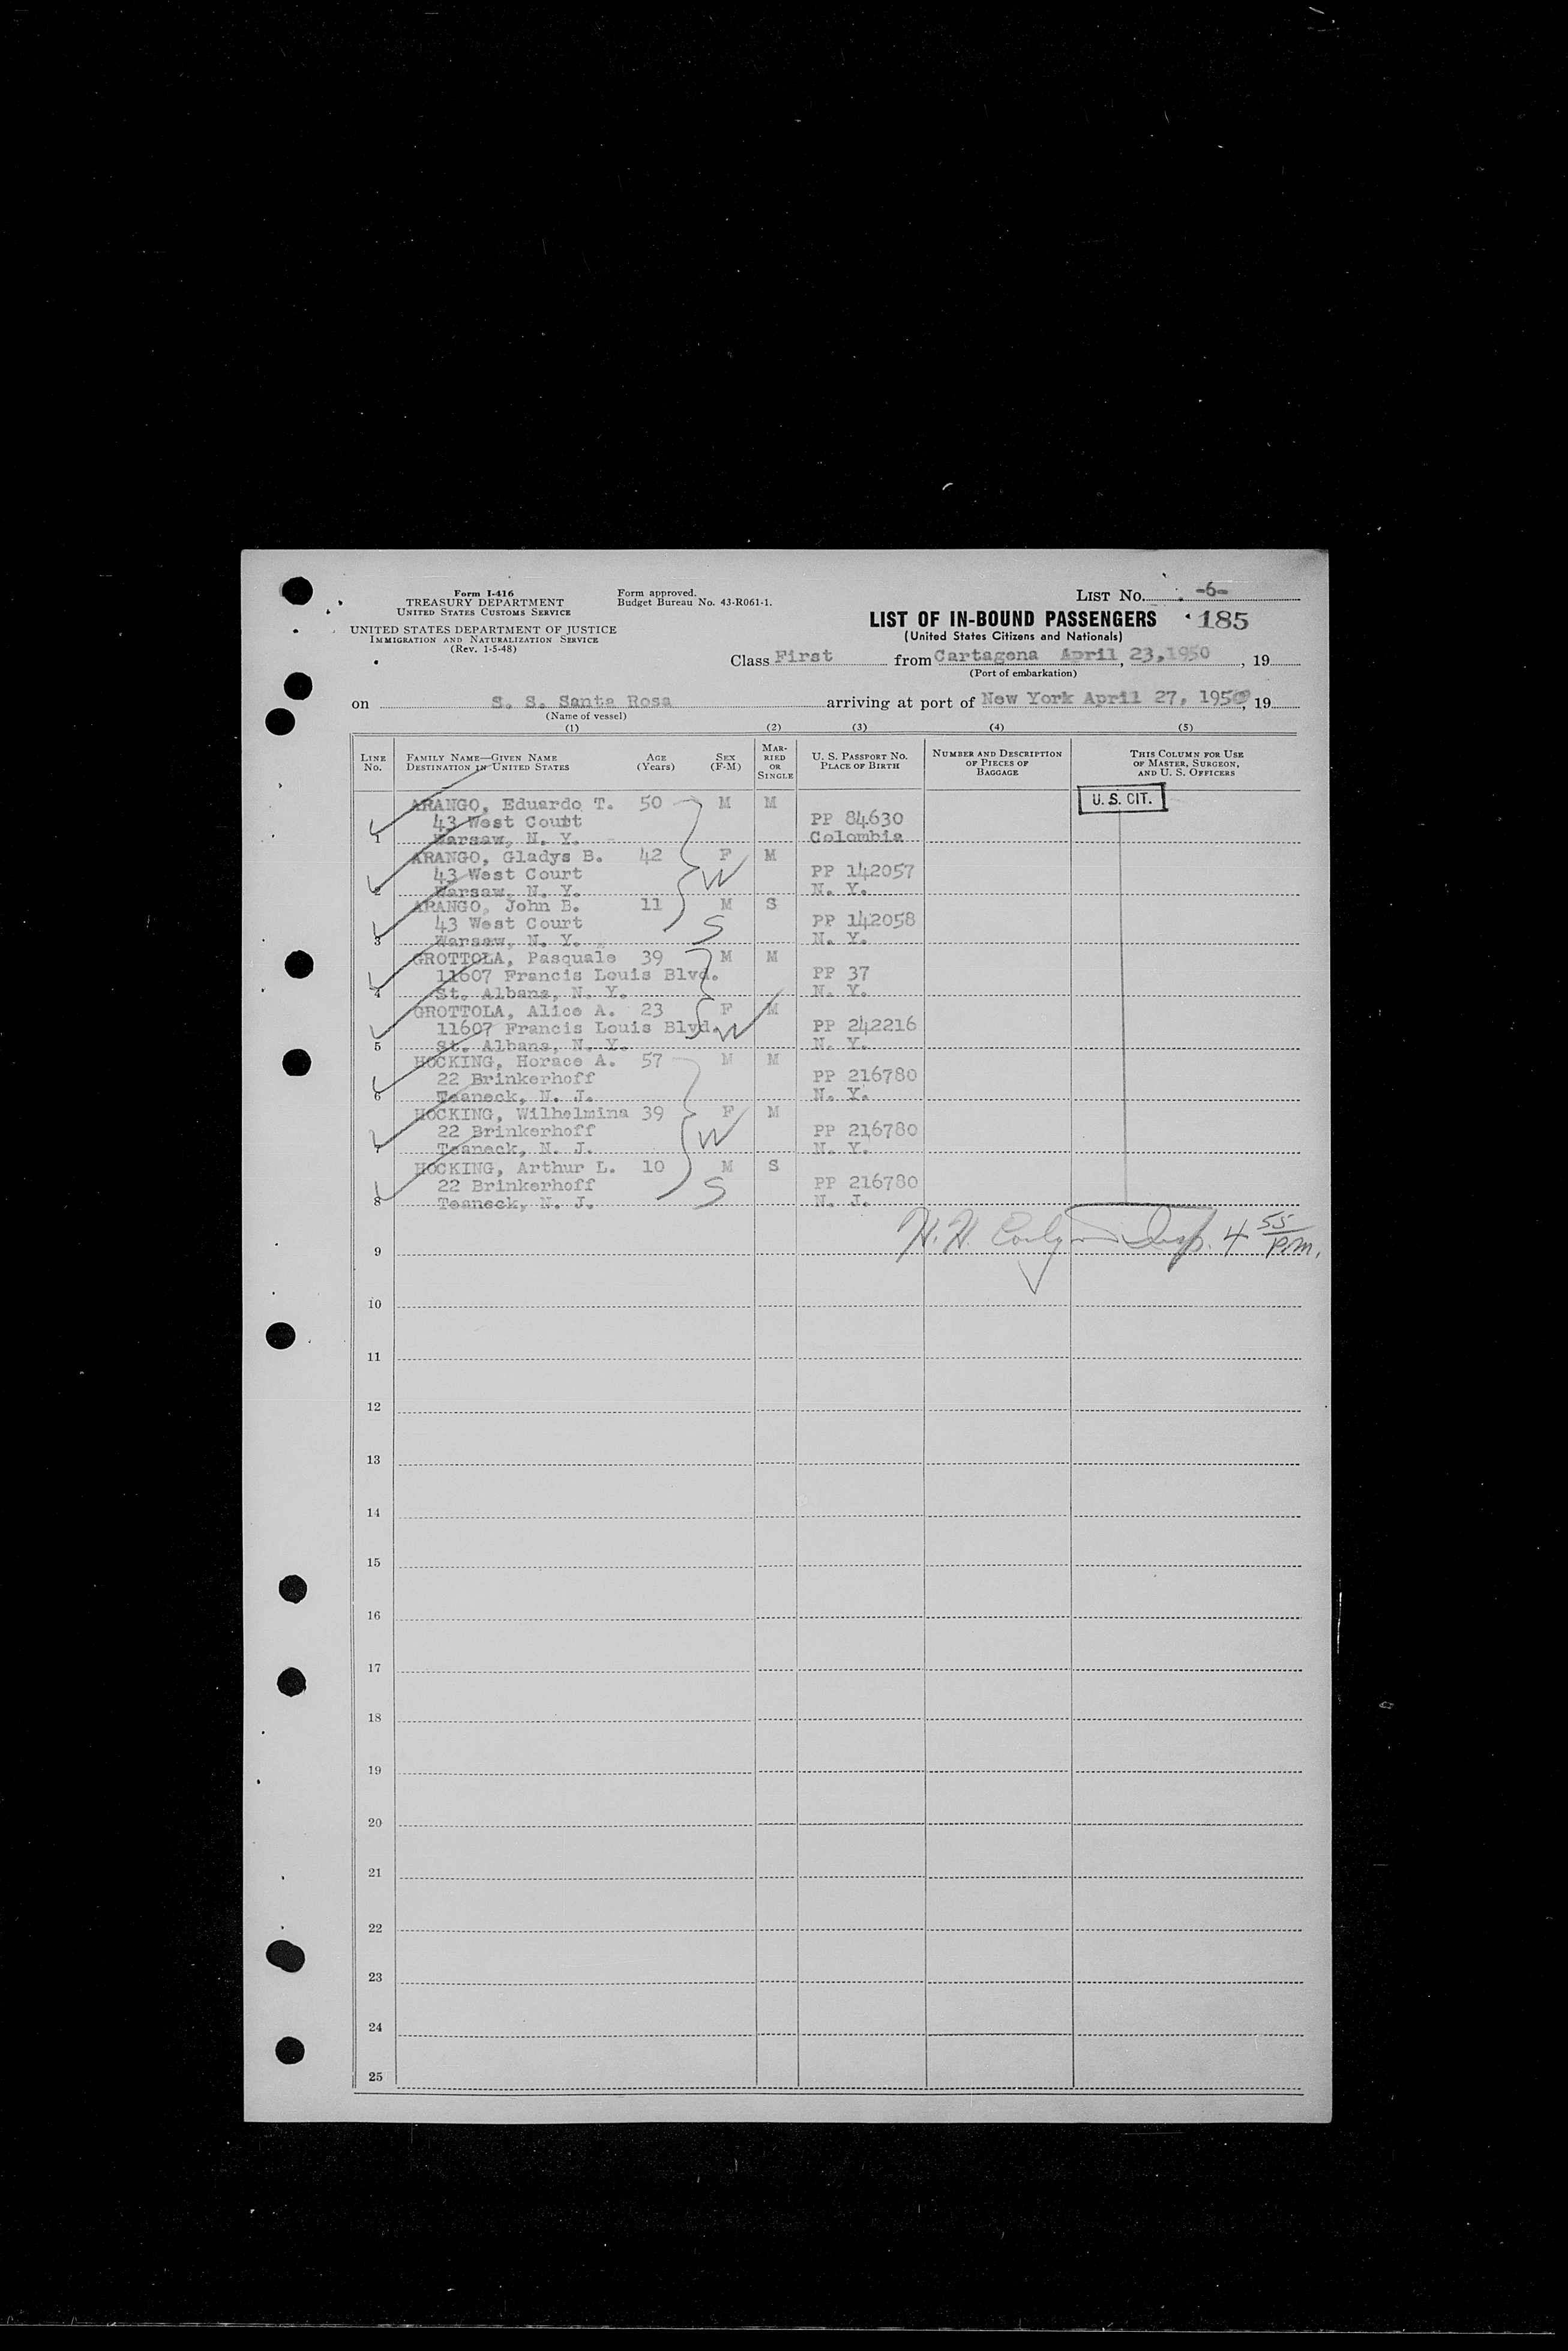 Form I-416
TREASURY DEPARTMENT
UNITED STATES CUSTOMS SERVICE
UNITED STATES DEPARTMENT OF JUSTICE
IMMIGRATION AND NATURALIZATION SERVICE
(Rev. 1-5-48)
Form approved.
Budget Bureau No. 43-R061-1.
LIST NO. -6-
LIST OF IN-BOUND PASSENGERS 185
(United States Citizens and Nationals)
Class First from Cartagena April 23, 1950, 19
(Port of embarkation)
on S. S. Santa Rosa arriving at port of New York April 27, 1950, 19
(Name of vessel)
(1) (2) (3) (4) (5)
LINE NO. FAMILY NAME—GIVEN NAME DESTINATION IN UNITED STATES AGE (Years) SEX (F-M) MARRIED OR SINGLE U. S. PASSPORT NO. PLACE OF BIRTH NUMBER AND DESCRIPTION OF PIECES OF BAGGAGE THIS COLUMN FOR USE OF MASTER, SURGEON, AND U. S. OFFICERS
ARANGO, Eduardo T. 50 M M U. S. CIT.
43 West Court PP 84630
1 Warsaw, N. Y. Colombia
ARANGO, Gladys B. 42 F M
43 West Court W PP 142057
2 Warsaw, N. Y. N. Y.
ARANGO, John B. 11 M S
43 West Court S PP 142058
3 Warsaw, N. Y. N. Y.
GROTTOLA, Pasquale 39 M M
11607 Francis Louis Blvd. PP 37
4 St. Albans, N. Y. N. Y.
GROTTOLA, Alice A. 23 F M
11607 Francis Louis Blvd. W PP 242216
5 St. Albans, N. Y. N. Y.
HOCKING, Horace A. 57 M M
22 Brinkerhoff PP 216780
6 Teaneck, N. J. N. Y.
HOCKING, Wilhelmina 39 F M
22 Brinkerhoff W PP 216780
7 Teaneck, N. J. N. Y.
HOCKING, Arthur L. 10 M S
22 Brinkerhoff S PP 216780
8 Teaneck, N. J. N. J.
H. H. Insp. 4 55 P.m.
9
10
11
12
13
14
15
16
17
18
19
20
21
22
23
24
25